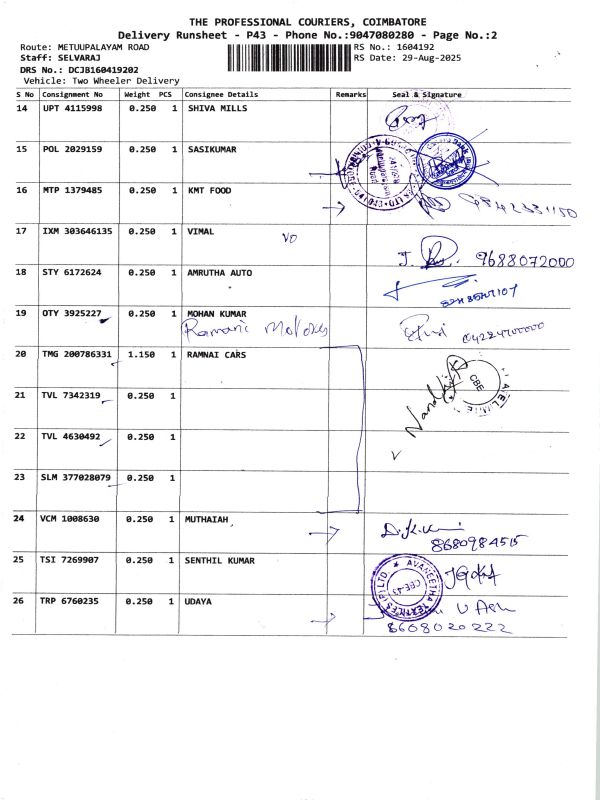 THE PROFESSIONAL COURIERS, COIMBATORE
Delivery Runsheet - P43 - Phone No.:9047080280 - Page No.:2
Route: METUUPALAYAM ROAD RS No.: 1604192
Staff: SELVARAJ RS Date: 29-Aug-2025
DRS No.: DCJB160419202
Vehicle: Two Wheeler Delivery
S No Consignment No Weight PCS Consignee Details Remarks Seal & Signature
14 UPT 4115998 0.250 1 SHIVA MILLS
15 POL 2029159 0.250 1 SASIKUMAR
16 MTP 1379485 0.250 1 KMT FOOD
17 IXM 303646135 0.250 1 VIMAL
9688072000
18 STY 6172624 0.250 1 AMRUTHA AUTO
19 OTY 3925227 0.250 1 MOHAN KUMAR
Ramani Motors
20 TMG 200786331 1.150 1 RAMNAI CARS
CBE
21 TVL 7342319 0.250 1
22 TVL 4630492 0.250 1
23 SLM 377028079 0.250 1
24 VCM 1008630 0.250 1 MUTHAIAH
8680984515
25 TSI 7269907 0.250 1 SENTHIL KUMAR
AVANEETHA TEXTILES (P) LTD.
CBE-43
26 TRP 6760235 0.250 1 UDAYA
8608020222